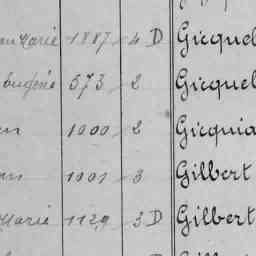 Marie 1887 4 D Gicquel
Eugène 573 2 Gicquel
1000 2 Gicquia
1001 3 Gilbert
Marie 1129 3 D Gilbert